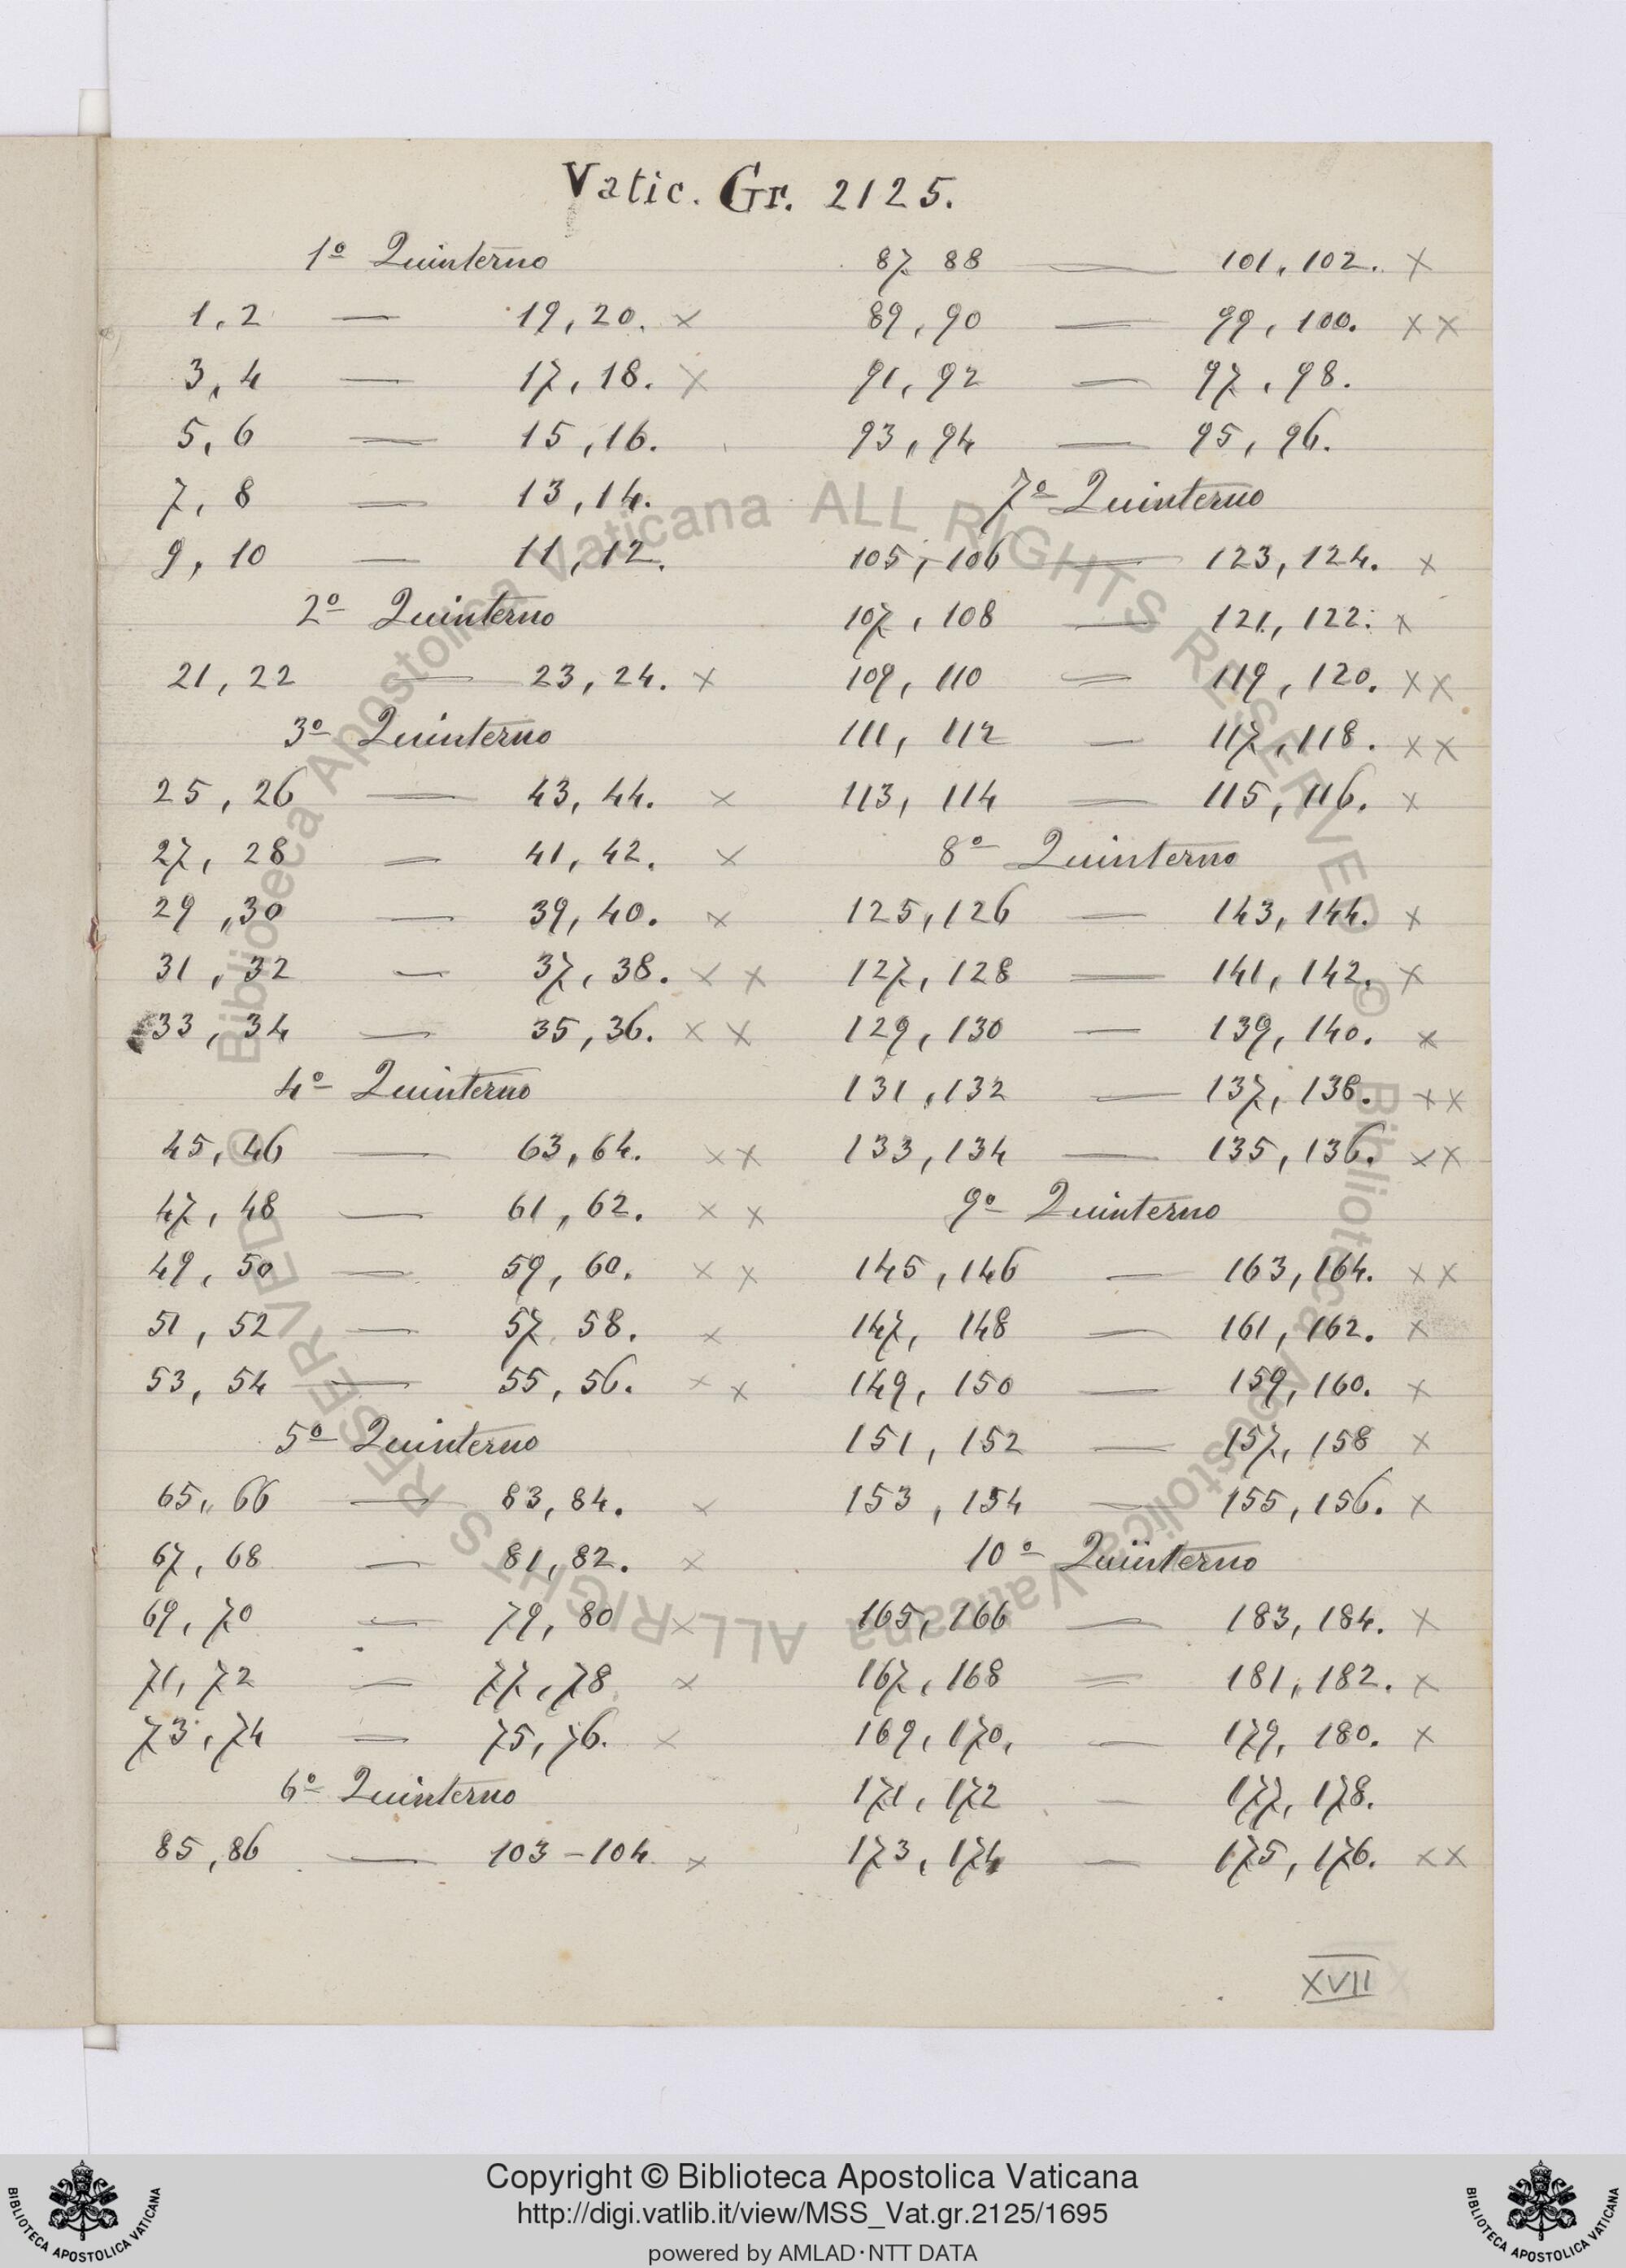 Vatic. Gr. 2125.
1º Quinterno
1, 2 — 19, 20. ×
3, 4 — 17, 18. ×
5, 6 — 15, 16.
7, 8 — 13, 14.
9, 10 — 11, 12.
2º Quinterno
21, 22 — 23, 24. ×
3º Quinterno
25, 26 — 43, 44. ×
27, 28 — 41, 42. ×
29, 30 — 39, 40. ×
31, 32 — 37, 38. × ×
33, 34 — 35, 36. × ×
4º Quinterno
45, 46 — 63, 64. × ×
47, 48 — 61, 62. × ×
49, 50 — 59, 60. × ×
51, 52 — 57, 58. ×
53, 54 — 55, 56. × ×
5º Quinterno
65, 66 — 83, 84. ×
67, 68 — 81, 82. ×
69, 70 — 79, 80 ×
71, 72 — 77, 78 ×
73, 74 — 75, 76. ×
6º Quinterno
85, 86 — 103 – 104. ×
87 88 — 101, 102. ×
89, 90 — 99, 100. × ×
91, 92 — 97, 98.
93, 94 — 95, 96.
7º Quinterno
105, 106 — 123, 124. ×
107, 108 — 121, 122. ×
109, 110 — 119, 120. × ×
111, 112 — 117, 118. × ×
113, 114 — 115, 116. ×
8º Quinterno
125, 126 — 143, 144. ×
127, 128 — 141, 142. ×
129, 130 — 139, 140. ×
131, 132 — 137, 138. × ×
133, 134 — 135, 136. × ×
9º Quinterno
145, 146 — 163, 164. × ×
147, 148 — 161, 162. ×
149, 150 — 159, 160. ×
151, 152 — 157, 158 ×
153, 154 — 155, 156. ×
10º Quinterno
165, 166 — 183, 184. ×
167, 168 — 181, 182. ×
169, 170, — 179, 180. ×
171, 172 — 177, 178.
173, 174 — 175, 176. × ×
XVII
© Biblioteca Apostolica Vaticana ALL RIGHTS RESERVED
© Biblioteca Apostolica Vaticana ALL RIGHTS RESERVED
Copyright © Biblioteca Apostolica Vaticana
http://digi.vatlib.it/view/MSS_Vat.gr.2125/1695
powered by AMLAD·NTT DATA
BIBLIOTECA APOSTOLICA VATICANA
BIBLIOTECA APOSTOLICA VATICANA